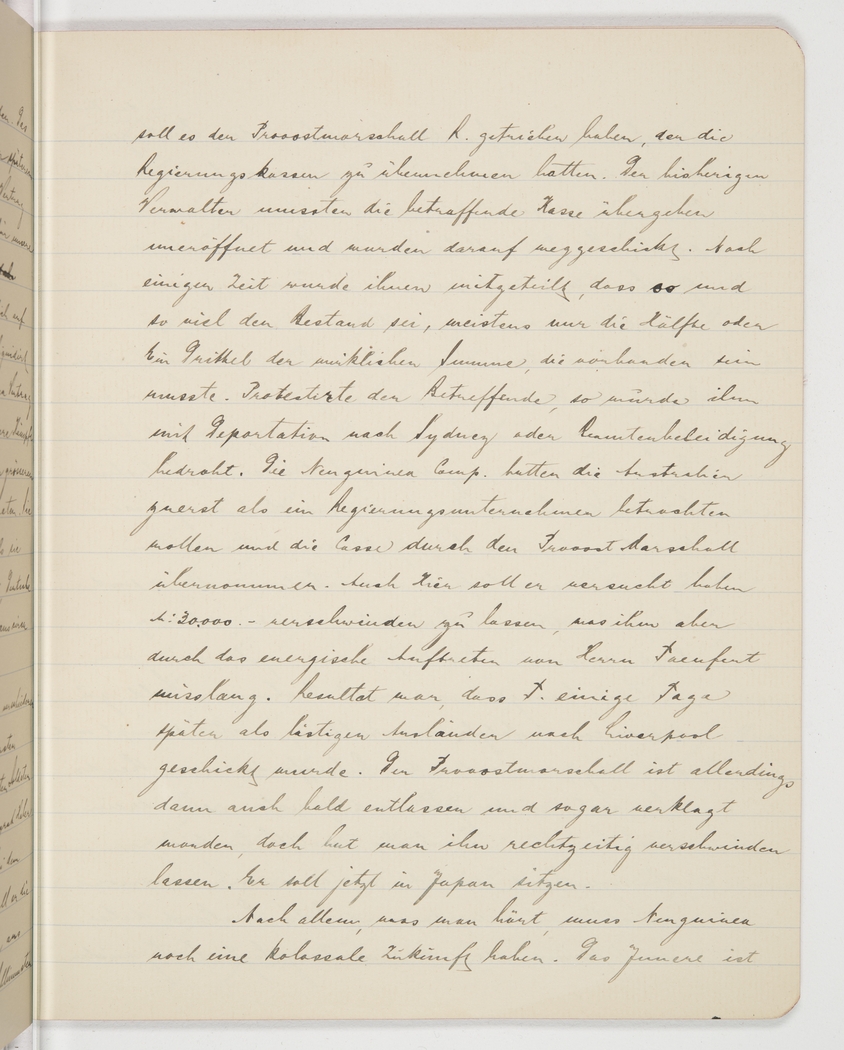 soll es der Provostmarschall R. getrieben haben, der die
Regierungskassen zu übernehmen hatten. Der bisherigen
Verwalter mussten die betreffende Kasse übergeben
uneröffnet und wurden darauf weggeschickt. Nach
einiger Zeit wurde ihnen mitgeteilt, dass so und
so viel der Bestand sei, meistens nur die Hälfte oder
Ein Drittel der wirklichen Summe, die vorhanden sein
musste. Protestirte der Betreffende, so wurde ihm
mit Deportation nach Sydney oder Beamtenbeleidigung
bedroht. Die Neuguinea Comp. hatten die Australier
zuerst als ein Regierungsunternehmen betrachten
wollen und die Casse durch den Provost Marschall
übernommen. Auch Hier soll er versucht haben
M. 30,000.- verschwinden zu lassen, was ihm aber
durch das energische Auftreten von Herrn
misslang. Resultat war, dass einige Tage
später als lästigen Ausländer nach Liverpool
geschickt wurde. Der Provostmarschall ist allerdings
dann auch bald entlassen und sogar verklagt
worden, doch hat man ihn rechtzeitig verschwinden
lassen. Er soll jetzt in Japan sitzen.
Nach allem, was man hört, muss Neuguinea
noch eine kolossale Zukunft haben. Das Innere ist